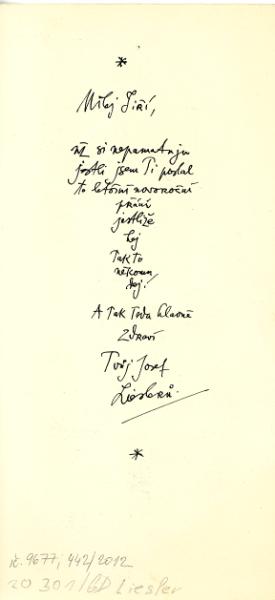 *
Milej Jiří,
už si nepamatuju
jestli jsem Ti poslal
to letošní novoroční
přání
jestliže
hej
tak to
někomu
dej!
A tak Teda hlavně
Zdraví
Tvůj Josef
Lieslerů.
*
ič. 9677, 442/2012
20 301/GD Liesler